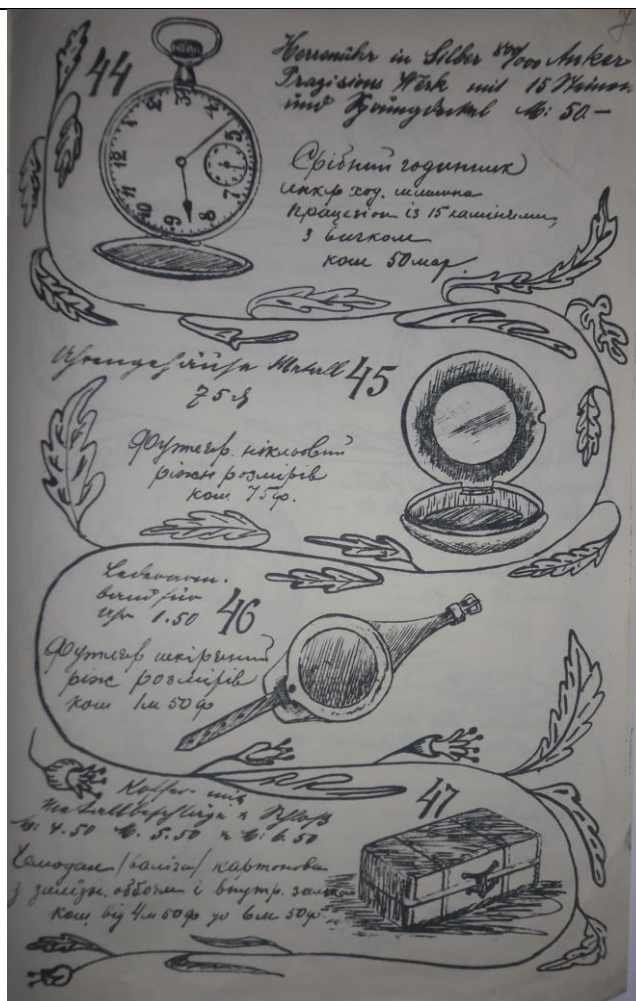 44
Herrenuhr in Silber 800/000 Anker
Präzisions Werk mit 15 Steinen
und Sprungdeckel M: 50.—
Срібний годинник
анкр. ход.
прецезіон із 15 камінчими,
з вічком
кош 50 мар.
Uhrengehäuse Metall 45
75 ₰
Футляр. нікльовий
ріжн розмірів
кош 75ф.
Lederarm-
band für
Uhr 1.50 46
Футляр шкіряний
ріж розмірів
кош 1м 50ф
Koffer mit
Metallbeschläge u Schloß
M: 4.50 M: 5.50 u M: 6.50
47
Чемодан /валіза/ картонова
з залізн. оббоєм і внутр. замком
кош. від 4м 50ф до 6м 50ф.